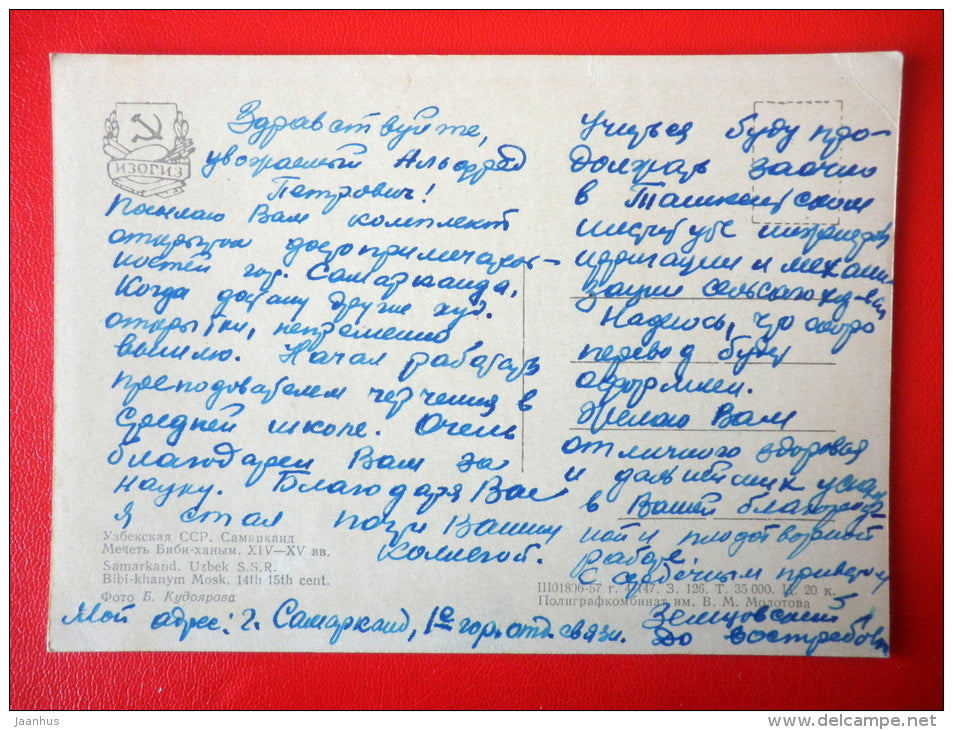 ИЗОГИЗ
Здравствуйте,
уважаемый Альфред
Петрович!
Посылаю Вам комплект
открыток достопримечатель-
ностей гор. Самарканда,
Когда достану другие худ.
открытки, непременно
вышлю. Начал работать
преподавателем черчения в
средней школе. Очень
благодарен Вам за
науку. Благодаря Вас
я стал почти Вашим
коллегой.
Учиться буду про-
должать заочно
в Ташкентском
институте инженеров
ирригации и механи-
зации сельского х-ва
Надеюсь, что скоро
перевод будет
оформлен.
Желаю Вам
отличного здоровья
и дальнейших успехов
в Вашей благород-
ной и плодотворной
работе.
С сердечным приветом
Земцовский
Мой адрес: г. Самарканд, 1е гор. отд. связи. До востребов
Узбекская ССР. Самарканд
Мечеть Биби-ханым. XIV—XV вв.
Samarkand. Uzbek S.S.R.
Bibi-khanym Mosk. 14th-15th cent.
Фото Б. Кудоярова
Ш01806-57 г. З. 126. Т. 35 000. Ц. 20 к.
Полиграфкомбинат им. В. М. Молотова
jaanhus
www.delcampe.net